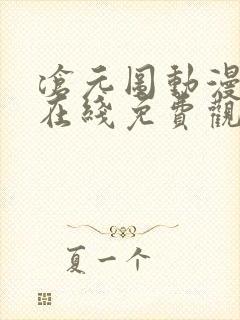 滄元圖動漫
在綫免費觀
夏一个